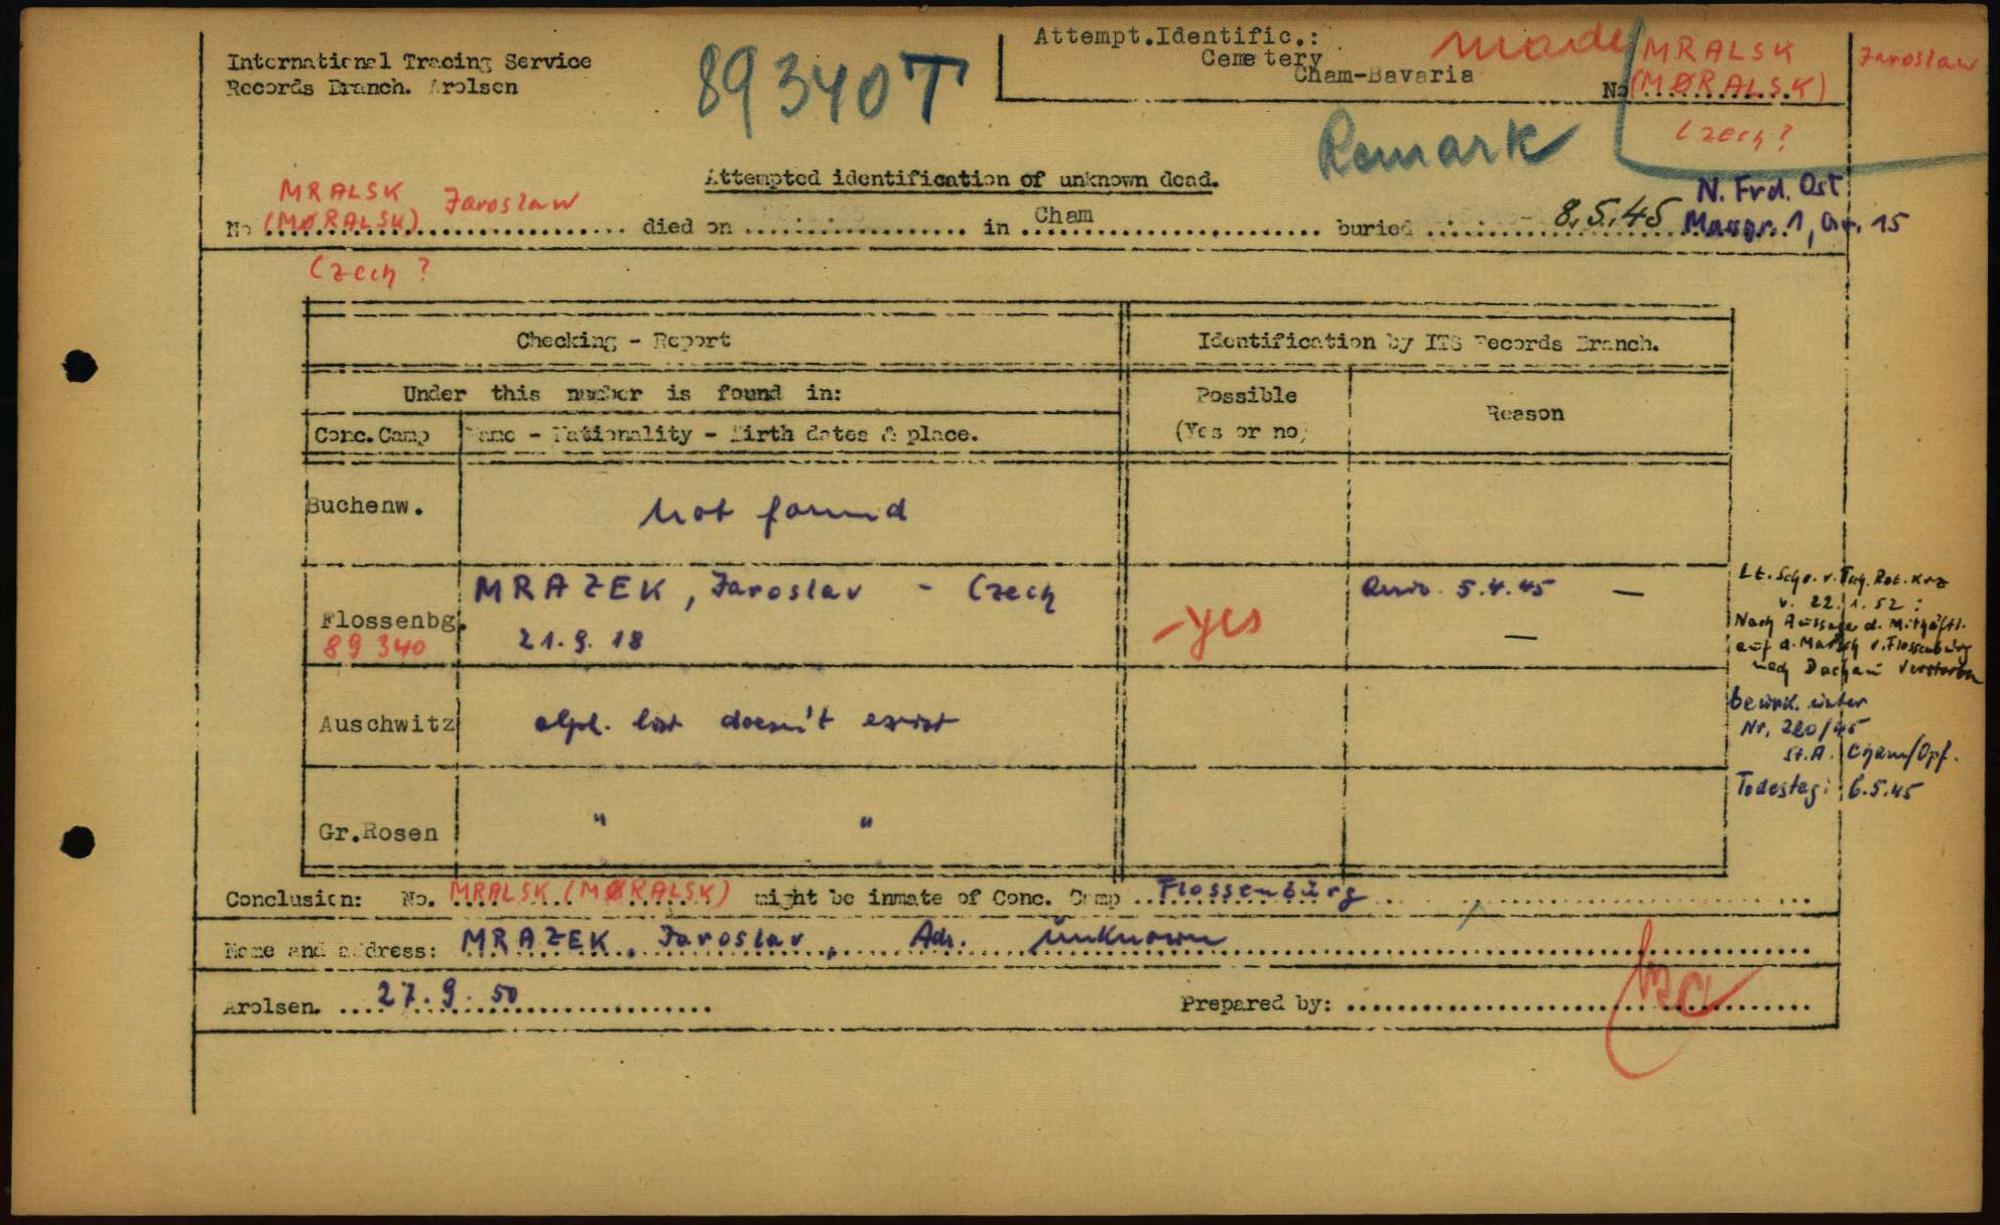 International Tracing Service
Records Branch. Arolsen
89340T
Attempt.Identific.:
Cemetery
Cham-Bavaria
made
No. MRALSK
(MØRALSK)
Jaroslaw
Czech?
Remark
Attempted identification of unknown dead.
MRALSK Jaroslaw
No (MØRALSK) died on in Cham buried 8.5.45
N. Frd. Ost
Massgr. 1, Gr. 15
Czech ?
Checking - Report
Identification by ITS Records Branch.
Under this number is found in:
Possible
(Yes or no)
Reason
Conc.Camp
Name - Nationality - Birth dates & place.
Buchenw.
not found
Flossenbg.
89 340
MRAZEK, Jaroslav - Czech
21.9.18
-yes
5.4.45 —
—
Auschwitz
alph. list doesn't exist
Gr.Rosen
" "
v. 22.1.52:
Nach Aussage d. Mithäftl.
auf d. Marsch v. Flossenbürg
nach Dachau verstorben
beurk. unter
Nr. 220/45
St.A. Cham/Opf.
Todestag: 6.5.45
Conclusion: No. MRALSK (MØRALSK) might be inmate of Conc. Camp Flossenbürg
Name and address: MRAZEK, Jaroslav, Adr. unknown
Arolsen. 27.9.50
Prepared by: